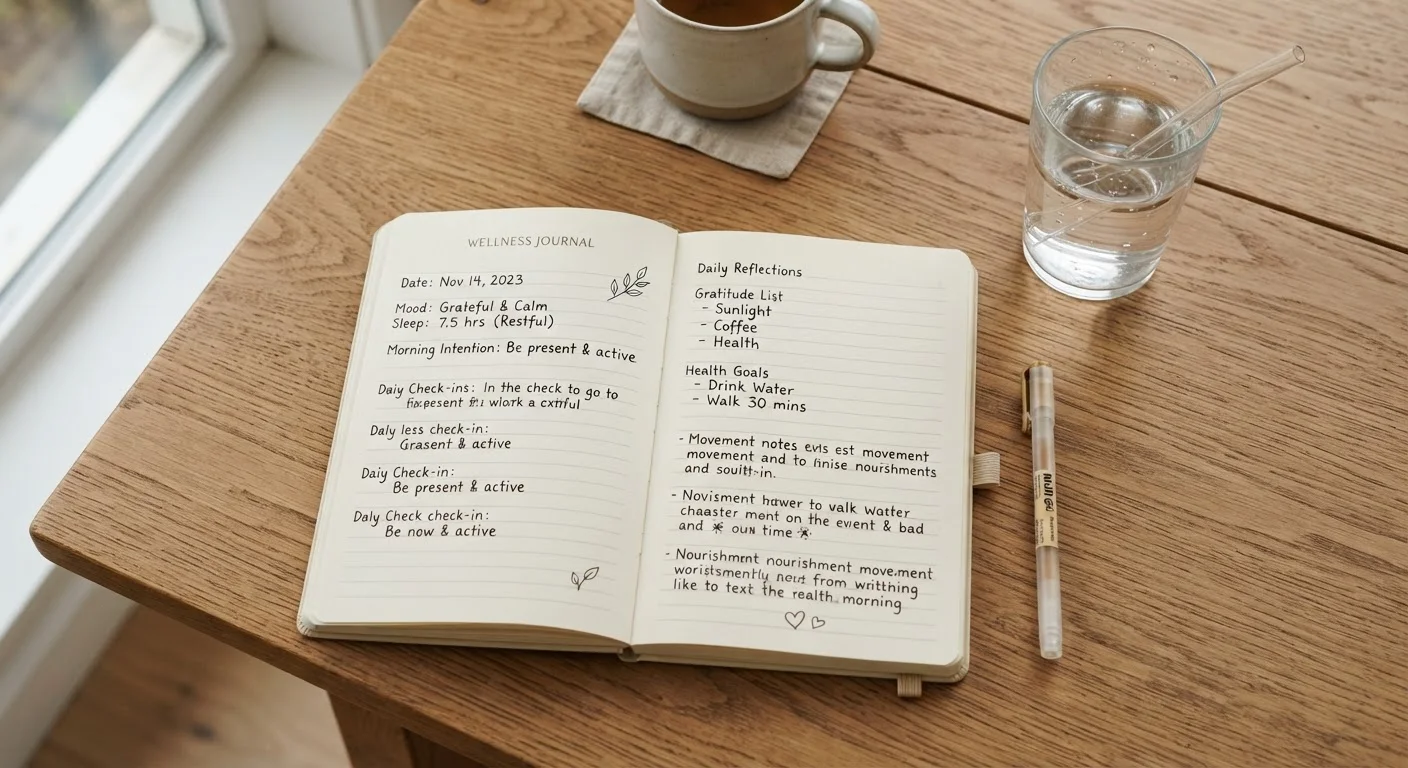 WELLNESS JOURNAL
Date: Nov 14, 2023
Mood: Grateful & Calm
Sleep: 7.5 hrs (Restful)
Morning Intention: Be present & active
Daiy Check-ins: In the check to go to
work a
Daly less check-in:
Grasent & active
Daiy Check-in:
Be present & active
Daly Check check-in:
Be now & active
Daily Reflections
Gratitude List
- Sunlight
- Coffee
- Health
Health Goals
- Drink Water
- Walk 30 mins
- Movement notes evis est movement
movement and to linise nourishments
and
- Novisment hawer to valk Watter
chaaster ment on the event & bad
and oun time
- Nourishment nourishment movement
from
like to text the realth morning